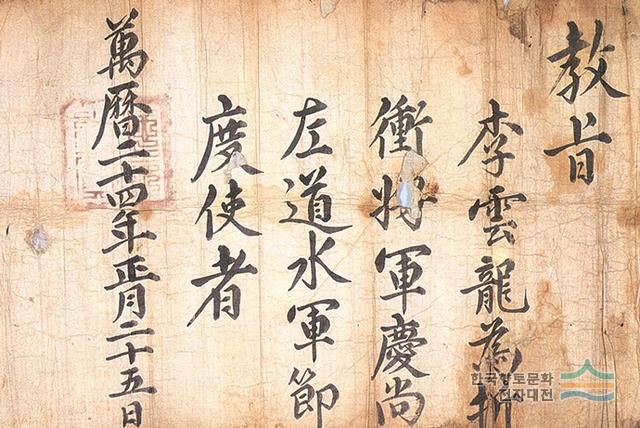 教旨
李雲龍為折
衝將軍慶尚
左道水軍節
度使者
萬曆二十四年正月二十五日
한국향토문화
전자대전